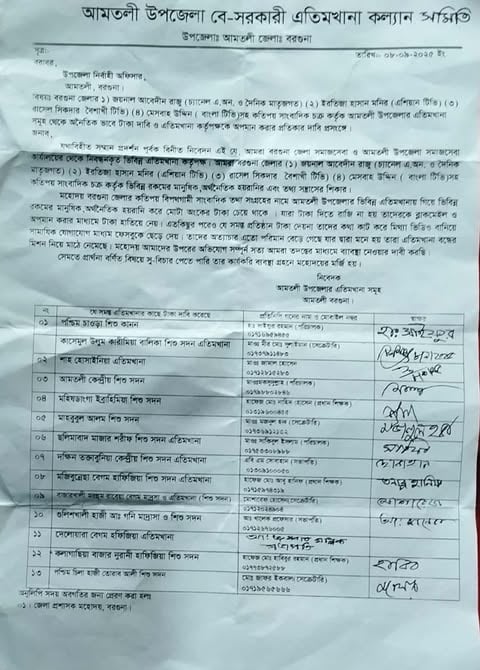 আমতলী উপজেলা বে-সরকারী এতিমখানা কল্যান সমিতি
উপজেলাঃ আমতলী জেলাঃ বরগুনা
সূত্রঃ-
তারিখঃ- ০৮-০৯-২০২৫ ইং
বরাবর,
উপজেলা নির্বাহী অফিসার,
আমতলী, বরগুনা।
বিষয়ঃ বরগুনা জেলার ১) জয়নাল আবেদীন রাজু (চ্যানেল এ,অন, ও দৈনিক মাতৃজগত) (২) ইরতিজা হাসান মনির (এশিয়ান টিভি) (৩)
রাসেল সিকদার বৈশাখী টিভি) (৪) মেসবাহ উদ্দিন ( বাংলা টিভি)সহ কতিপয় সাংবাদিক চক্র কর্তৃক আমতলী উপজেলার এতিমখানা
সমূহ থেকে অনৈতিক ভাবে টাকা দাবি ও এতিমখানা কর্তৃপক্ষকে অপমান করার প্রতিকার দাবি প্রসঙ্গে।
জনাব,
যথাবিহীত সম্মান প্রদর্শন পূর্বক বিনীত নিবেদন এই যে, আমরা বরগুনা জেলা সমাজসেবা ও আমতলী উপজেলা সমাজসেবা
কার্যালয়ের থেকে নিবন্ধনকৃত ভিবিন্ন এতিমখানা কর্তৃপক্ষ। আমরা বরগুনা জেলার (১) জয়নাল আবেদীন রাজু (চ্যানেল এ,অন, ও দৈনিক
মাতৃজগত) (২) ইরতিজা হাসান মনির (এশিয়ান টিভি) (৩) রাসেল সিকদার বৈশাখী টিভি) (৪) মেসবাহ উদ্দিন ( বাংলা টিভি)সহ
কতিপয় সাংবাদিক চক্র কর্তৃক ভিবিন্ন রকমের মানুষিক,অর্থনৈতিক হয়রানির এবং তথ্য সন্ত্রাসের শিকার।
মহোদয় বরগুনা জেলার কতিপয় বিপথগামী সাংবাদিক তথ্য সংগ্রহের নামে আমতলী উপজেলার ভিবিন্ন এতিমখানায় গিয়ে ভিবিন্ন
রকমের মানুষিক,অর্থনৈতিক হয়রানি করে মোটা অংকের টাকা চেয়ে থাকে । যারা টাকা দিতে রাজি না হয় তাদেরকে ব্লাকমেইল ও
অপমান করার মাধ্যমে টাকা হাতিয়ে নেয়। এতকিছুর পরেও যে সমস্ত প্রতিষ্ঠান টাকা দেয়না তাদের কথা কাট করে মিথ্যা ভিডিও বানিয়ে
সামাযিক যোগাযোগ মাধ্যম ফেসবুকে ছেড়ে দেয়। তাদের অত্যাচার এতো পরিমান বেড়ে গেছে যার দ্বারা মনে হয় তারা এতিমখানা বন্ধের
মিশন নিয়ে মাঠে নেমেছে। মহোদয় আমাদের উপরের অভিযোগ সর্ম্পূন সত্য আমরা তদন্তের মাধ্যমে ব্যাবস্থা নেওয়ার দাবী করছি।
সেমতে প্রার্থনা বর্ণিত বিষয়ে সু-বিচার পেতে পারি তার কার্যকরি ব্যবস্থা গ্রহনে মহোদয়ের মর্জি হয়।
নিবেদক
আমতলী উপজেলার এতিমখানা সমূহ
আমতলী, বরগুনা।
নং যে সমস্ত এতিমখানার কাছে টাকা দাবি করেছে প্রতিনিধি গনের নাম ও মোবাইল নম্বর স্বাক্ষর
০১ পশ্চিম চাওড়া শিশু কানন (পরিচালক)
কাসেমুল উলুম কারীমিয়া বালিকা শিশু সদন এতিমখানা মাওঃ মীর মোঃ (সেক্রেটারি)
০২ শাহ হোসাইনিয়া এতিমখানা মাওঃ জামাল হোসেন
০৩ আমতলী কেন্দ্রীয় শিশু সদন (পরিচালক)
০৪ মহিষডাংগা ইব্রাহিমিয়া শিশু সদন হাফেজ মোঃ নাহিন হোসেন (প্রধান শিক্ষক)
০৫ মাহবুবুল আলম শিশু সদন (সেক্রেটারি)
০৬ হলিমাবাদ মাজার শরীফ শিশু সদন এতিমখানা মাওঃ সাকিবুল ইসলাম (পরিচালক)
০৭ দক্ষিন তক্তাবুনিয়া কেন্দ্রীয় শিশু সদন এতিমখানা এবি এম সোবাহান (সভাপতি)
০৮ মজিবুন্নেছা বেগম হাফিজিয়া শিশু সদন হাফেজ মোঃ আবু হানিফ (প্রধান শিক্ষক)
০৯ (শিশু সদন) মোশারেফ হোসেন(সেক্রেটারি)
১০ গুলিশখালী হাজী আঃ গনি মাদ্রাসা ও শিশু সদন আঃ খালেক প্রফেসর (সভাপতি)
১১ দেলোয়ারা বেগম হফিজিয়া এতিমখানা
১২ কলাগাছিয়া বাজার নুরানী হাফিজিয়া শিশু সদন হাফেজ মোঃ হাবিবুর রহমান (প্রধান শিক্ষক)
১৩ পশ্চিম চিলা হাজী তোরাব আলী শিশু সদন মোঃ জাফর ইকবাল(সেক্রেটারি)
অনুলিপি সদয় অবগতির জন্য প্রেরণ করা হলঃ
০১। জেলা প্রশাসক মহোদয়, বরগুনা।